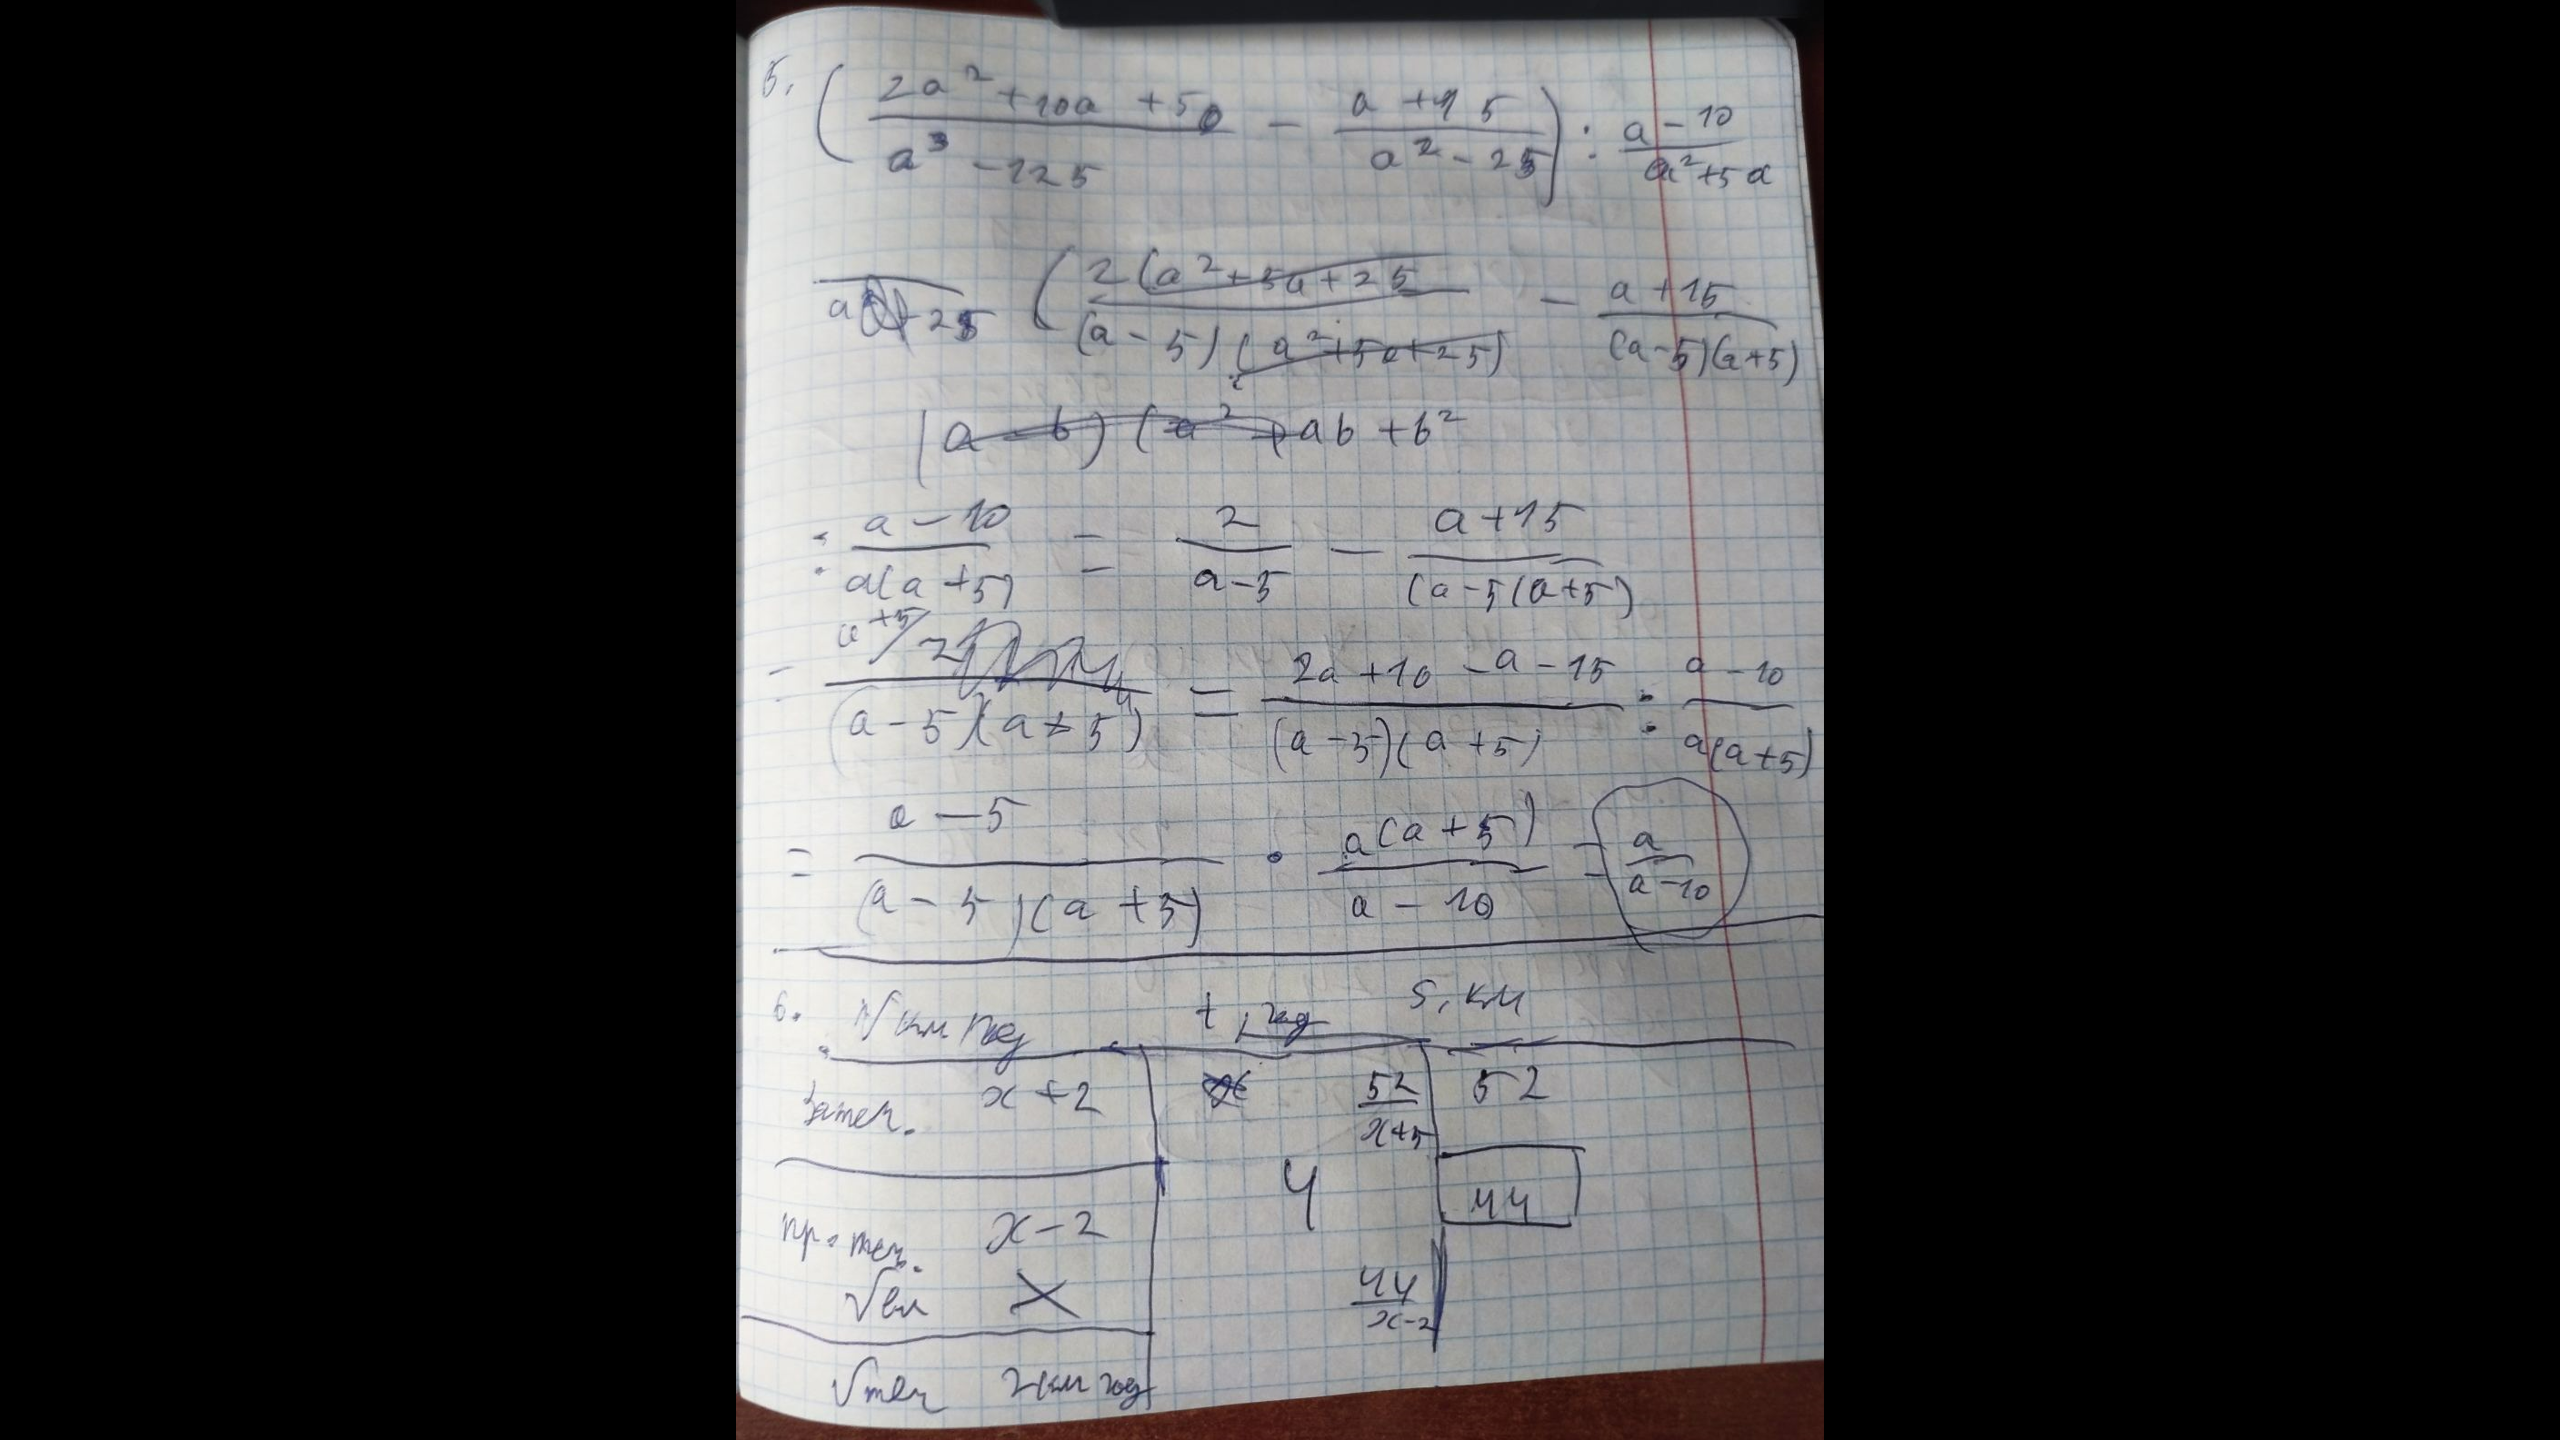 5. ( (2a² + 10a + 50)/(a³ - 125) - (a + 15)/(a² - 25) ) : (a - 10)/(a² + 5a)
( 2(a² + 5a + 25)/((a - 5)(a² + 5a + 25)) - (a + 15)/((a - 5)(a + 5))
(a - b)(a² + ab + b²
: (a - 10)/(a(a + 5)) = 2/(a - 5) - (a + 15)/((a - 5(a + 5))
a + 5/ 2
(a - 5)(a + 5) = (2a + 10 - a - 15)/((a - 5)(a + 5)) : (a - 10)/(a(a + 5))
= (a - 5)/((a - 5)(a + 5)) · a(a + 5)/(a - 10) = a/(a - 10)
6. V км год t, год S, км
За теч. x + 2 52/(x + 5) 52
4 44
пр. теч. x - 2
Vвл X 44/(x - 2)
Vтеч 2 км год